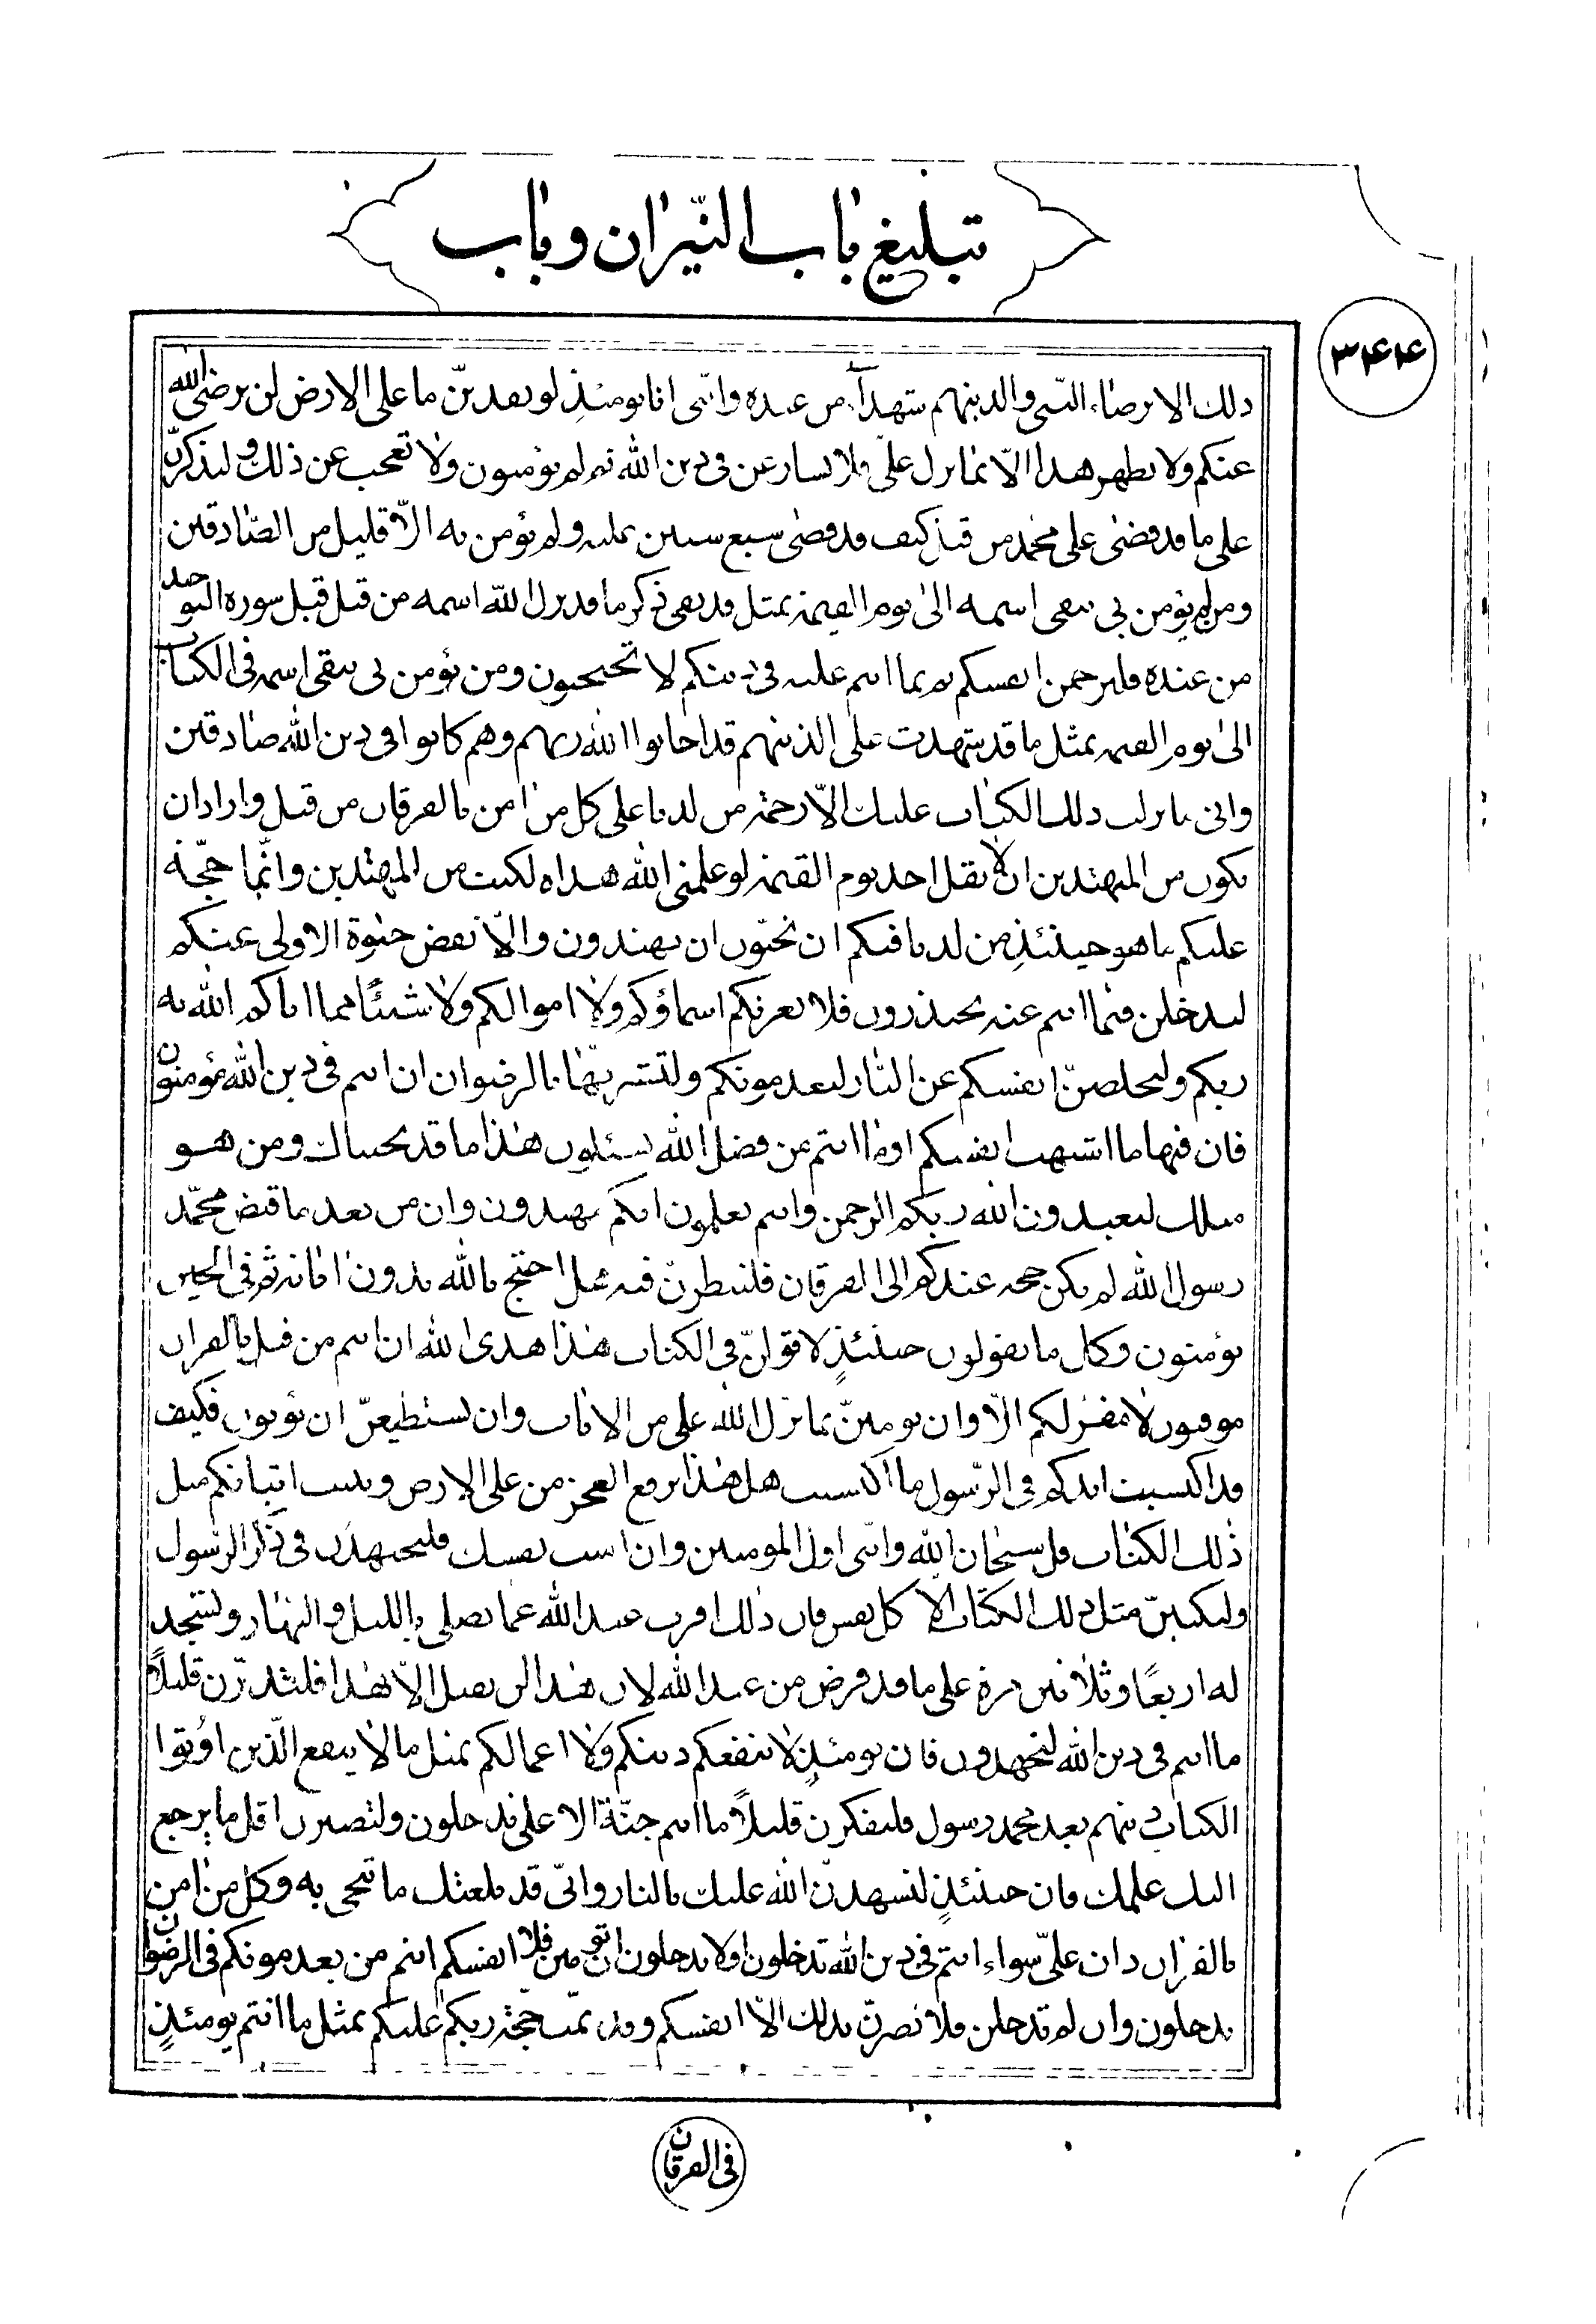 تبليغ باب النّيران وباب
٣٤٤
ذلك الا برضاء النبي والذينهم شهدآء من عنده وانّى انا يومئذٍ لو يفدينّ ما على الارض لن يرضى الله
عنكم ولا يظهر هذا الّا بما نزل علىّ فلا تسارعن فى دين الله ثم لم تؤمنون ولا تعجب عن ذلك ولتذكرنّ
على ما قد قضى على محمد من قبل كيف قد قضى سبع سنين عليه ولم يؤمن به الّا قليل من الصّادقين
ومن لم يؤمن بى يبقى اسمه الى يوم القيمة بمثل قد بقى ذكر ما قد نزل الله اسمه من قبل قبل سورة التوحيد
من عنده فلترحمن انفسكم ثم بما انتم عليه فى دينكم لا تحتجبون ومن يؤمن بى يبقى اسمه فى الكتاب
الى يوم القيمة بمثل ما قد شهدت على الذينهم قد اجابوا الله ربهم وهم كانوا فى دين الله صادقين
وانى ما نزلت ذلك الكتاب عليك الّا رحمة من لدنا على كل من آمن بالفرقان من قبل واراد ان
يكون من المهتدين ان لا يقل احد يوم القيمة لو علمنى الله هداه لكنت من المهتدين وانّما حجّة
عليكم ما هو حينئذٍ من لدنا فيكم ان تحبّون ان تهتدون والّا تقض حيوة الاولى عنكم
لتدخلن فيما انتم عنه تحذرون فلا تغرنكم اسماؤكم ولا اموالكم ولا شيئًا مما اتاكم الله به
ربكم ولتخلصنّ انفسكم عن النار لبعد موتكم ولتشترينّها بالرضوان ان انتم فى دين الله مؤمنون
فان فيها ما اشتهت انفسكم او ما انتم من فضل الله تسئلون هذا ما قد نجيناك ومن هو
مثلك لتعبدون الله ربكم الرحمن وانتم تعلمون انكم تهتدون وان من بعد ما قبض محمّد
رسول الله لم يكن حجة عندكم الى الفرقان فلتنظرنّ فيه هل احتج بالله بدون اياته ثم فى الحين
تؤمنون وكل ما تقولون حينئذٍ لاقولنّ فى الكتاب هذا هدى الله ان انتم من قبل بالقران
موقنون لا مفر لكم الّا وان تومننّ بما نزل الله على من الايات وان تستطيعنّ ان تؤتون فكيف
قد اكتسبت ايديكم فى الرّسول ما اكتسبت هل هذا يرفع العجز من على الارض ويثبت اتيانكم مثل
ذلك الكتاب قل سبحان الله وانّى اول المومنين وان انت نفسك فلتجتهدن فى ذكر الرسول
ولتكتبنّ مثل ذلك الكتاب الا كل نفس فان ذلك اقرب عند الله عما تصلى بالليل والنهار وتسجد
له اربعًا وثلاثين مرة على ما قد فرض من عند الله لان هذا لن يقبل الّا بهذا فلتتدبّرن قليلًا
ما انتم فى دين الله لتجتهدون فان يومئذٍ لا ينفعكم دينكم ولا اعمالكم بمثل ما لا ينفع الّذين اوتوا
الكتاب دينهم بعد محمد رسول فلتفكرن قليلًا ما انتم جنّة الاعلى تدخلون ولتصبرن اقل ما يرجع
اليك علمك فان حينئذٍ لتشهدنّ الله عليك بالنار وانّى قد بلغتك ما تنجى به وكل من آمن
بالقران وان علىّ سواء انتم فى دين الله تدخلون او لا تدخلون ان تومنن فلانفسكم انتم من بعد موتكم فى الرضوان
تدخلون وان لم تدخلن فلا تضرنّ بذلك الّا انفسكم وقد تمت حجة ربكم عليكم بمثل ما انتم يومئذٍ
فى الفرقان